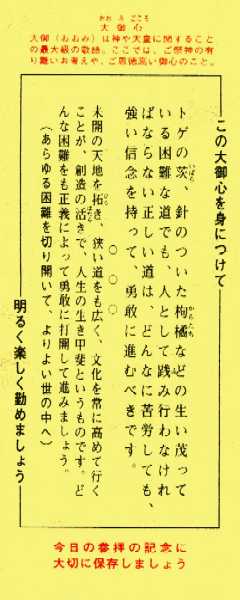 おおみごころ
大御心
大御(おおみ)は神や天皇に関すること
の最大級の敬語。ここでは、ご祭神の有
り難いお考えや、ご思徳高い御心のこと。
この大御心を身につけて
トゲの茨、針のついた枸橘などの生い茂って
いばら
からたち
いる困難な道でも、人として践み行わなけれ
ばならない正しい道は、どんなに苦労しても、
強い信念を持って、勇敢に進むべきです。
○ ○ ○
未開の天地を拓き、狭い道をも広く、文化を常に高めて行く
ひら
ことが、創造の活きで、人生の生き甲斐というものです。ど
はたら
んな困難をも正義によって勇敢に打開して進みましょう。
(あらゆる困難を切り開いて、よりよい世の中へ)
明るく楽しく勤めましょう
今日の参拝の記念に
大切に保存しましょう